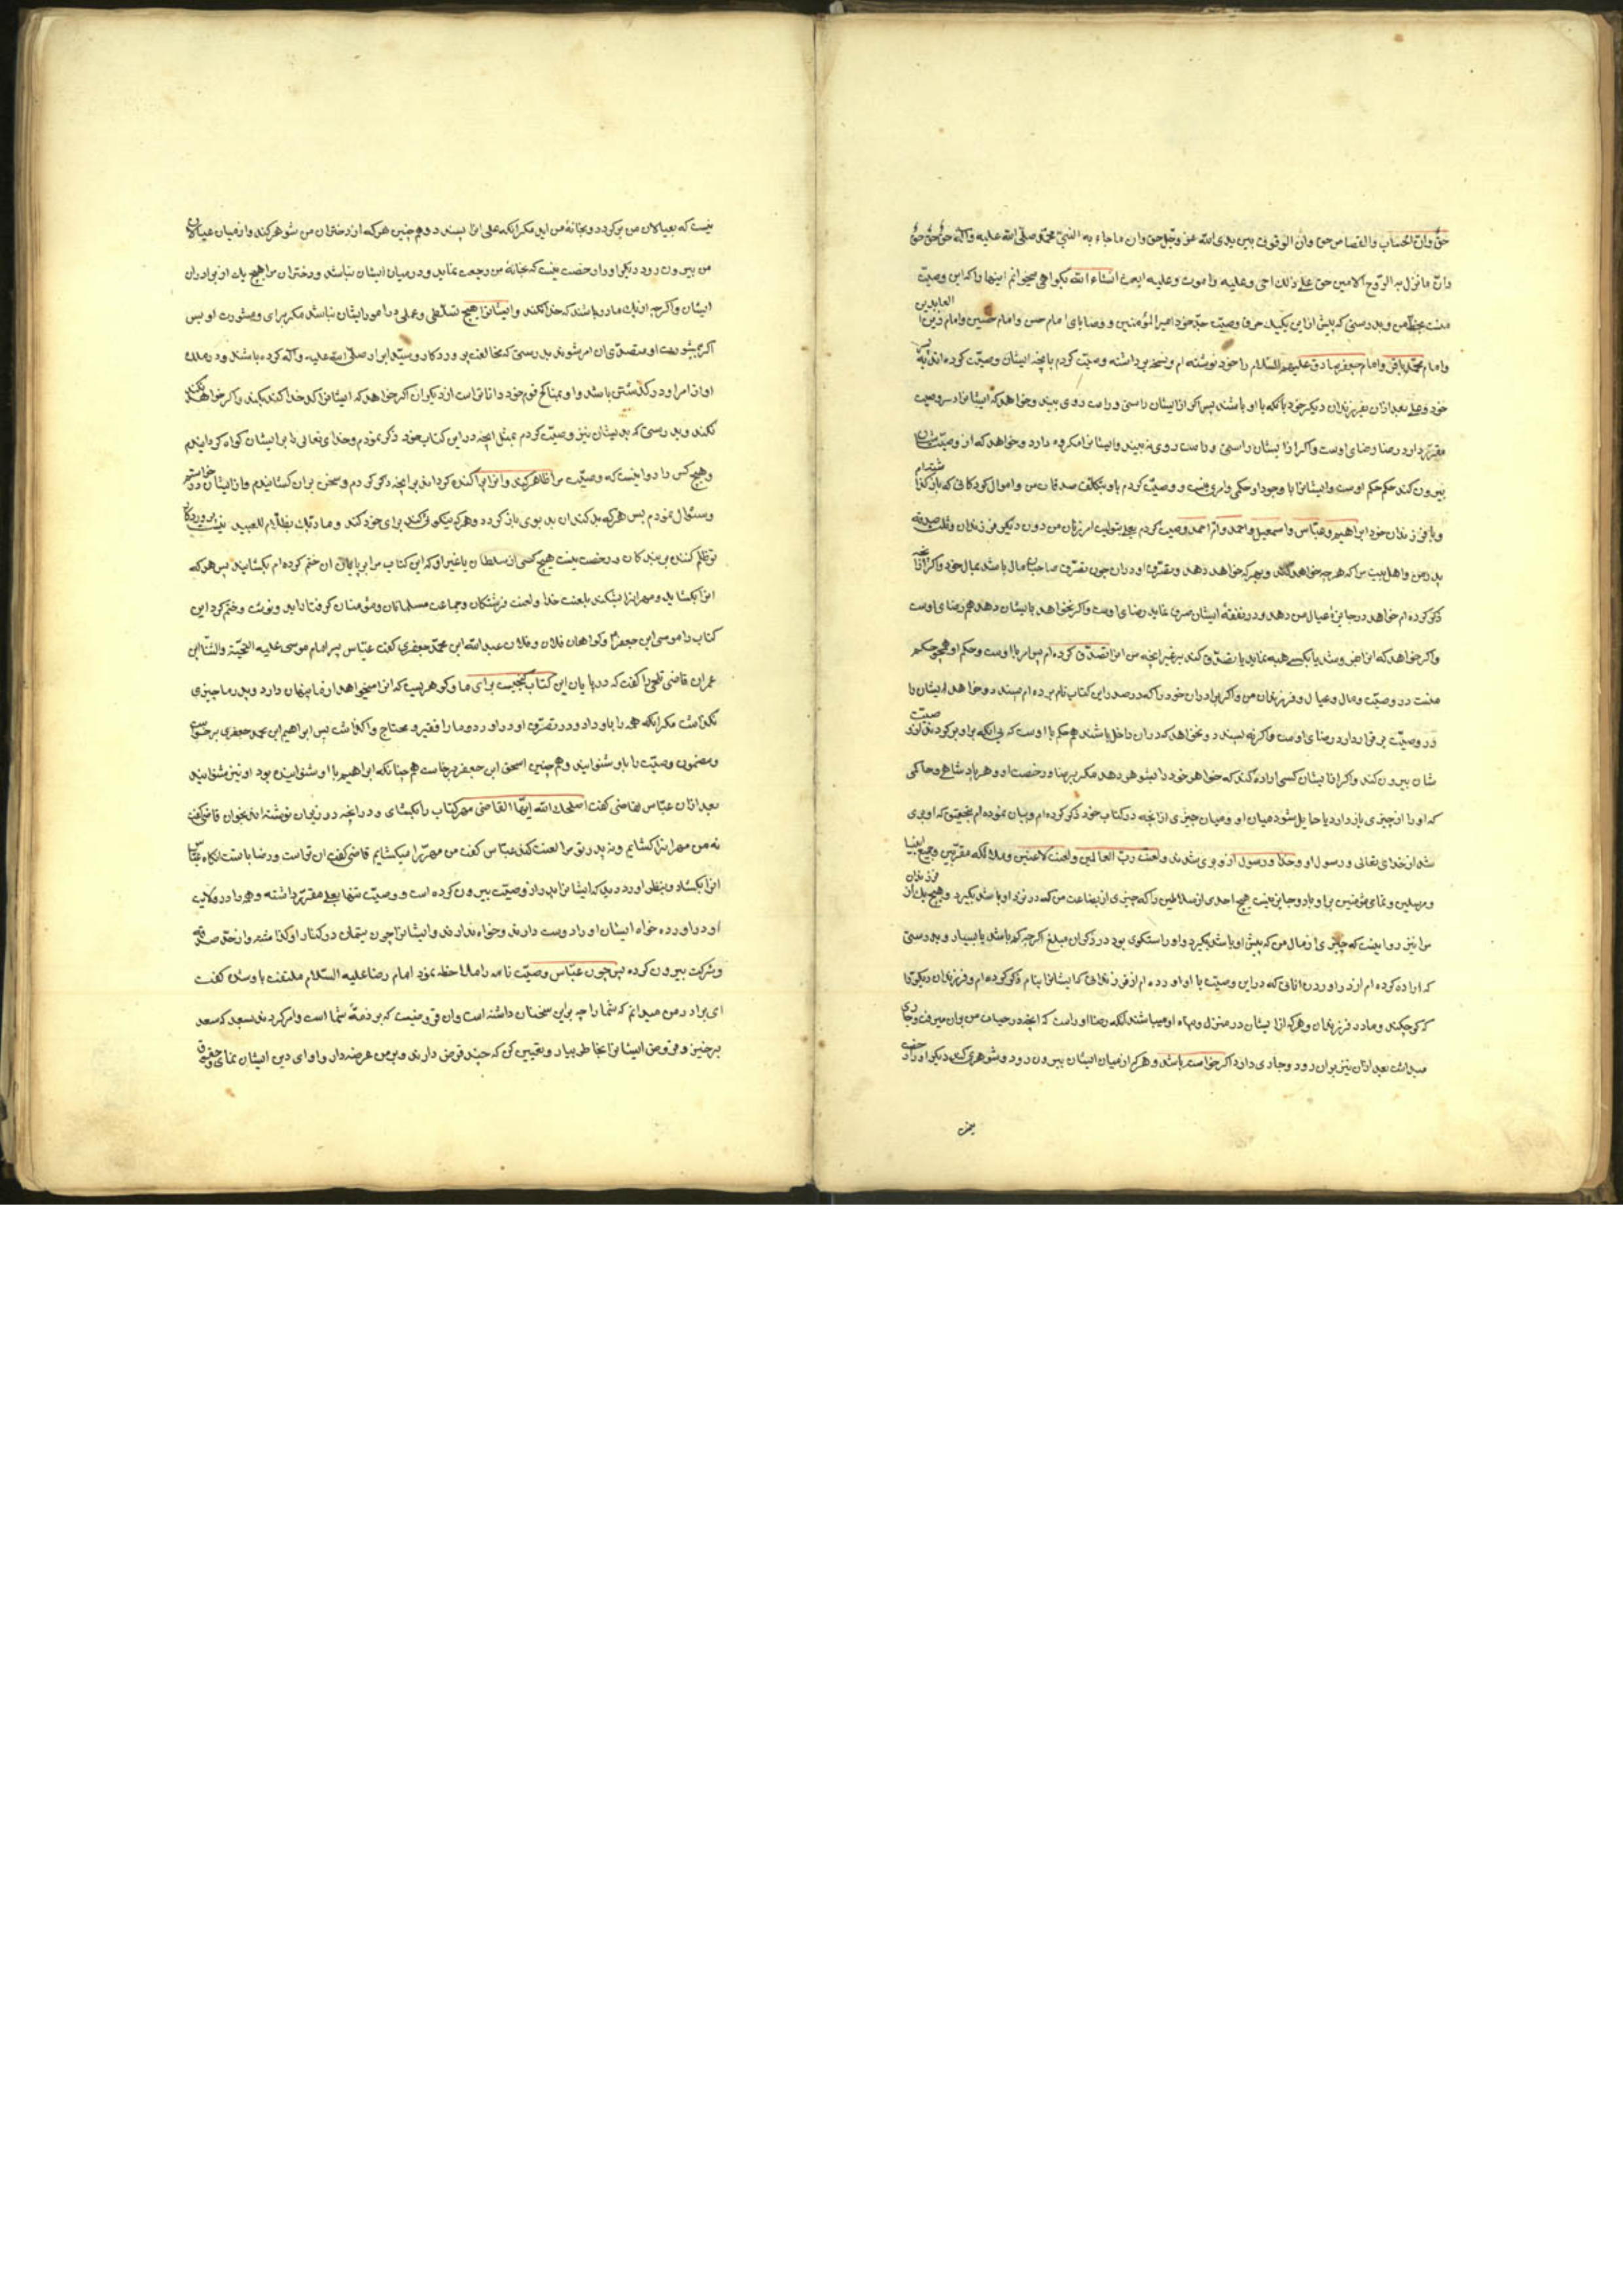 حق وان الحساب والقصاص حق وان الوقوف بین یدی الله عز وجل حق وان ما جاء به النبی محمد صلی الله علیه وآله حق حق حق
وان ما نزل به الروح الامین حق علی ذلک احی وعلیه اموت وعلیه ابعث انشاء الله بکواهی میخوانم اینها را که این وصیت
منست بخط من وبدرستی که پیش ازاین یکیک حرف وصیت جد خود امیر المؤمنین و وصایای امام حسن وامام حسین وامام زین العابدین
وامام محمد باقر وامام جعفر صادق علیهم السلام را خود نوشته ام ونسخه برداشته وصیت کردم بانچه ایشان وصیت کرده اند
خود وعلی بعد ازان بفرزندان دیکر خود بانکه با او باشند پس اکر ازایشان راستی وراست روی بیند وخواهد که ایشانرا در وصیت
مقرر دارد رضا رضای اوست واکر ازایشان راستی وراست روی نه بیند وایشانرا مکروه دارد وخواهد که از وصیت شان
بیرون کند حکم حکم اوست وایشانرا با وجود او حکمی وامری نیست و وصیت کردم باو صدقات من واموال کودکانی که باز کذاشته ام
وبا فرزندان خود ابراهیم وعباس واسمعیل واحمد وام احمد وصیت کردم بعلی امر زنان من دون دیکر فرزندان وثلث صدقه
پدر من واهل بیت مرا که هرچه خواهد کند وبهرکه خواهد دهد وتصرف او دران چون تصرف صاحب مال باشد بمال خود واکر
ذکر کرده ام خواهد در عیال من دهد ودر نفقهٔ ایشان صرف نماید رضای اوست واکر نخواهد بایشان دهد هم رضای اوست
واکر خواهد که انرا بفروشد یا بکسی هبه نماید یا تصدق کند بر غیر انچه من انرا تصدق کرده ام پس امر با اوست وحکم او همچو حکم
منست در وصیت ومال وعیال وفرزندان من واکر برادران خود را که در صدر این کتاب نام برده ام پسندد وخواهد ایشان را
در وصیت برقرار دارد رضای اوست واکر نه پسندد ونخواهد که دران داخل باشند هم حکم با اوست
شان بیرون کند واکر ازایشان کسی اراده کند که خواهر خود را بشوهر دهد مکر برضا ورخصت او وهر پادشاهی وحاکمی
که او را از چیزی بازدارد یا حایل شود میان او ومیان چیزی از انچه در کتاب خود ذکر کرده ام وبیان نموده ام بتحقیق که او بری
شد از خدای تعالی ورسول او وخدا ورسول ازو بری شدند ولعنت رب العالمین ولعنت لاعنین وملائکه مقربین وجمیع انبیا
ومرسلین وتمامی مؤمنین براو باد وجایز نیست هیچ احدی از سلاطین را که چیزی از بضاعت من که در نزد او باشد بکیرد وهیچ یک از فرزندان
مرا نیز روا نیست که چیزی از مال من که پیش او باشد بکیرد واو راستکوی بود در ذکران مبلغ اکرچه کم باشد یا بسیار وبدرستی
که اراده کرده ام از در اوردن انانی که دراین وصیت با او اورده ام از فرزندانی که ایشانرا بنام ذکر کرده ام وفرزندان دیکر را
که کوچکند ومادر فرزندان وهرکه ازایشان در منزل وپناه او میباشند انکه رضا اوراست که انچه در حیات من بران میرفت
بعد ازان نیز بران رود وجاری دارد اکر خواسته باشد وهرکه از میان ایشان بیرون رود وشوهری کند دیکر او را
نیست که بعیالان من برکردد وبخانهٔ من اید مکر انکه علی انرا پسندد وهمچنین هرکه از دختران من شوهر کند واز میان عیالان
من بیرون رود دیکر او را رخصت نیست که بخانهٔ من رجعت نماید ودر میان ایشان نباشد ودختران مرا هیچ یک از برادران
ایشان واکرچه از یک مادر باشند کدخدا نکنند وایشانرا هیچ تسلطی وعملی در امور ایشان نباشد مکر برای ومشورت او پس
اکر بی مشورت او متصدی ان امر شوند بدرستی که مخالفت پروردکار وسید ابرار صلی الله علیه وآله کرده باشند
او ان امر او در کذشتن باشد واو بمناکح قوم خود داناتر است از دیکران اکر خواهد که ایشانرا کدخدا کند بکند واکر خواهد نکند
نکند وبدرستی که بدیشان نیز وصیت کردم بمثل انچه دراین کتاب خود ذکر نمودم وخدای تعالی را بر ایشان کواه کردانیدم
وهیچ کس را روا نیست که وصیت مرا ظاهر کند وانرا پراکنده کرداند برانچه ذکر کردم وسخن بران کشانیدم
وسئوال نمودم پس هرکه بد کند ان بد بوی بازکردد وهرکه نیکوئی کند برای خود کند وما ربک بظلام للعبید نیست پروردکار
تو ظلم کننده بر بندکان ورخصت نیست هیچ کس از سلطان یا غیر او که این کتاب مرا که بر پایانی ان ختم کرده ام بکشاید پس هرکه
انرا بکشاید ومهر انرا بشکند بلعنت خدا ولعنت فرشتکان وجماعت مسلمانان ومؤمنان کرفتار اید ونوشت وختم کرد این
کتاب را موسی ابن جعفر وکواهان فلان وفلان عبد الله ابن محمد جعفری کفت عباس پسر امام موسی علیه التحیة والثنا بابن
عمران قاضی کفت که در پایان این کتاب کنجیست برای ما وکوهریست که انرا میخواهد از ما پنهان دارد وپدر ما چیزی
نکذاشت مکر انکه همه را باو داد ودر تصرف او در اورد وما را فقیر ومحتاج واکذاشت پس ابراهیم ابن محمد جعفری برخواست
ومضمون وصیت را باو شنوانید وهمچنین اسحق ابن جعفر برخاست همچنانکه ابراهیم با او شنوانیده بود او نیز شنوانید
بعد ازان عباس بقاضی کفت اصلحک الله ایها القاضی مهر کتاب را بکشای ودر انچه در زیران نوشته اند بخوان قاضی کفت
نه من مهر انرا کشایم ونه پدر تو مرا لعنت کند عباس کفت من مهر را میکشایم قاضی کفت ان تراست ورضا با تست انکاه عباس
انرا بکشاد وبنظر اورد دید که ایشانرا پدر از وصیت بیرون کرده است و وصیت تنها بعلی مقرر داشته وهمه را در ولایت
او در اورده خواه ایشان او را دوست دارند وخواه ندارند وایشانرا چون یتیمان در کنار او کذاشته واز حد صدقه
وشرکت بیرون کرده پس چون عباس وصیت نامه را ملاحظه نمود امام رضا علیه السلام ملتفت باو شده کفت
ای برادر من میدانم که شما را چه براین سخنان داشته است وان قروضیست که بر ذمهٔ شما است وامر کردند بسعید که سعد
برخیز وقروض ایشانرا بخاطر بیار وتعیین کن که چند قرض دارند وبر من عرضه دار وادای دین ایشان نمای